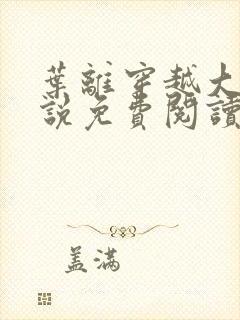 葉離穿越大
說免費閱讀
盖滿